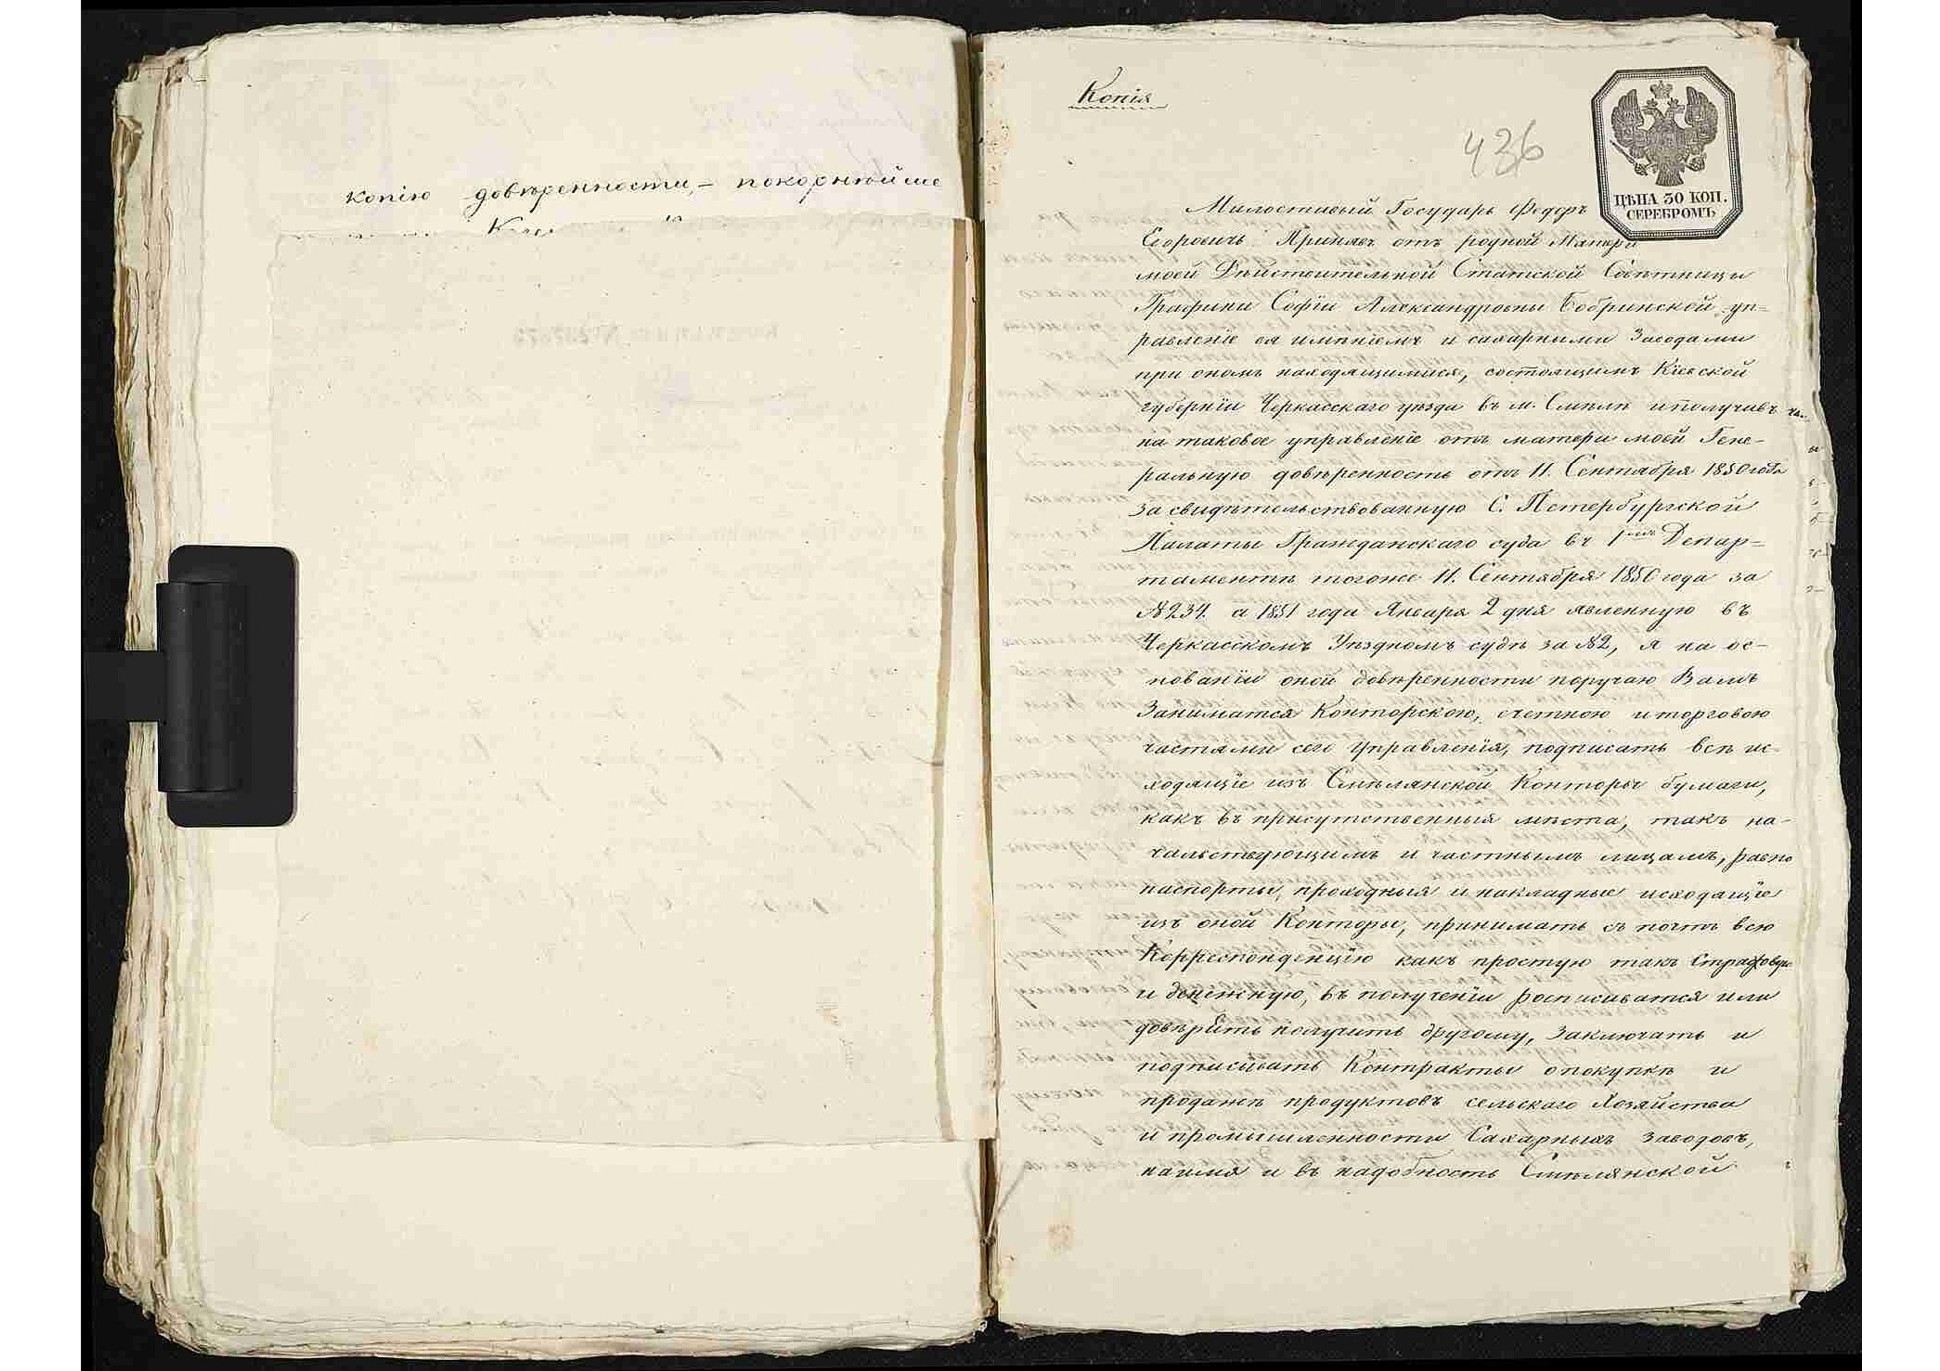 копію довѣренности, – покорнѣйше
Копія
436
ЦѢНА 30 КОП.
СЕРЕБРОМЪ
Милостивый Государь Федоръ
Егоровичъ! Принявъ отъ родной Матери
моей Дѣйствительной Статской Совѣтницы
Графини Софіи Александровны Бобринской, уп=
равленіе ея имѣніемъ и сахарными Заводами
при ономъ находящимися, состоящимъ Кіевской
губерніи Черкасскаго уѣзда въ м. Смѣлѣ и получивъ
на таковое управленіе отъ матери моей Гене-
ральную довѣренность отъ 11. Сентября 1850 года
засвидѣтельствованную С. Петербургской
Палаты Гражданскаго суда въ 1мъ Депар=
таментѣ тогоже 11. Сентября 1850 года за
№234. а 1851 года Января 2 дня явленную въ
Черкасскомъ Уѣздномъ судѣ за №2, я на ос-
нованіи оной довѣренности поручаю Вамъ
Заниматся Конторскою, счетною и торговою
частями сего Управленія, подписать всѣ ис-
ходящіе изъ Смѣлянской Конторы бумаги,
какъ въ присутственныя мѣста, такъ на-
чальствующимъ и частнымъ лицамъ, равно
паспорты, проходныя и накладные исходящіе
изъ оной Конторы, принимать съ почты всю
Корреспонденцію какъ простую такъ Страховую
и денежную, въ полученіи росписыватся или
довѣрить получить другому, Заключать и
подписывать Контракты о покупкѣ и
продажѣ продуктовъ сельскаго Хозяйства
и промышленности Сахарныхъ заводовъ,
найма и въ надобность Смѣлянской